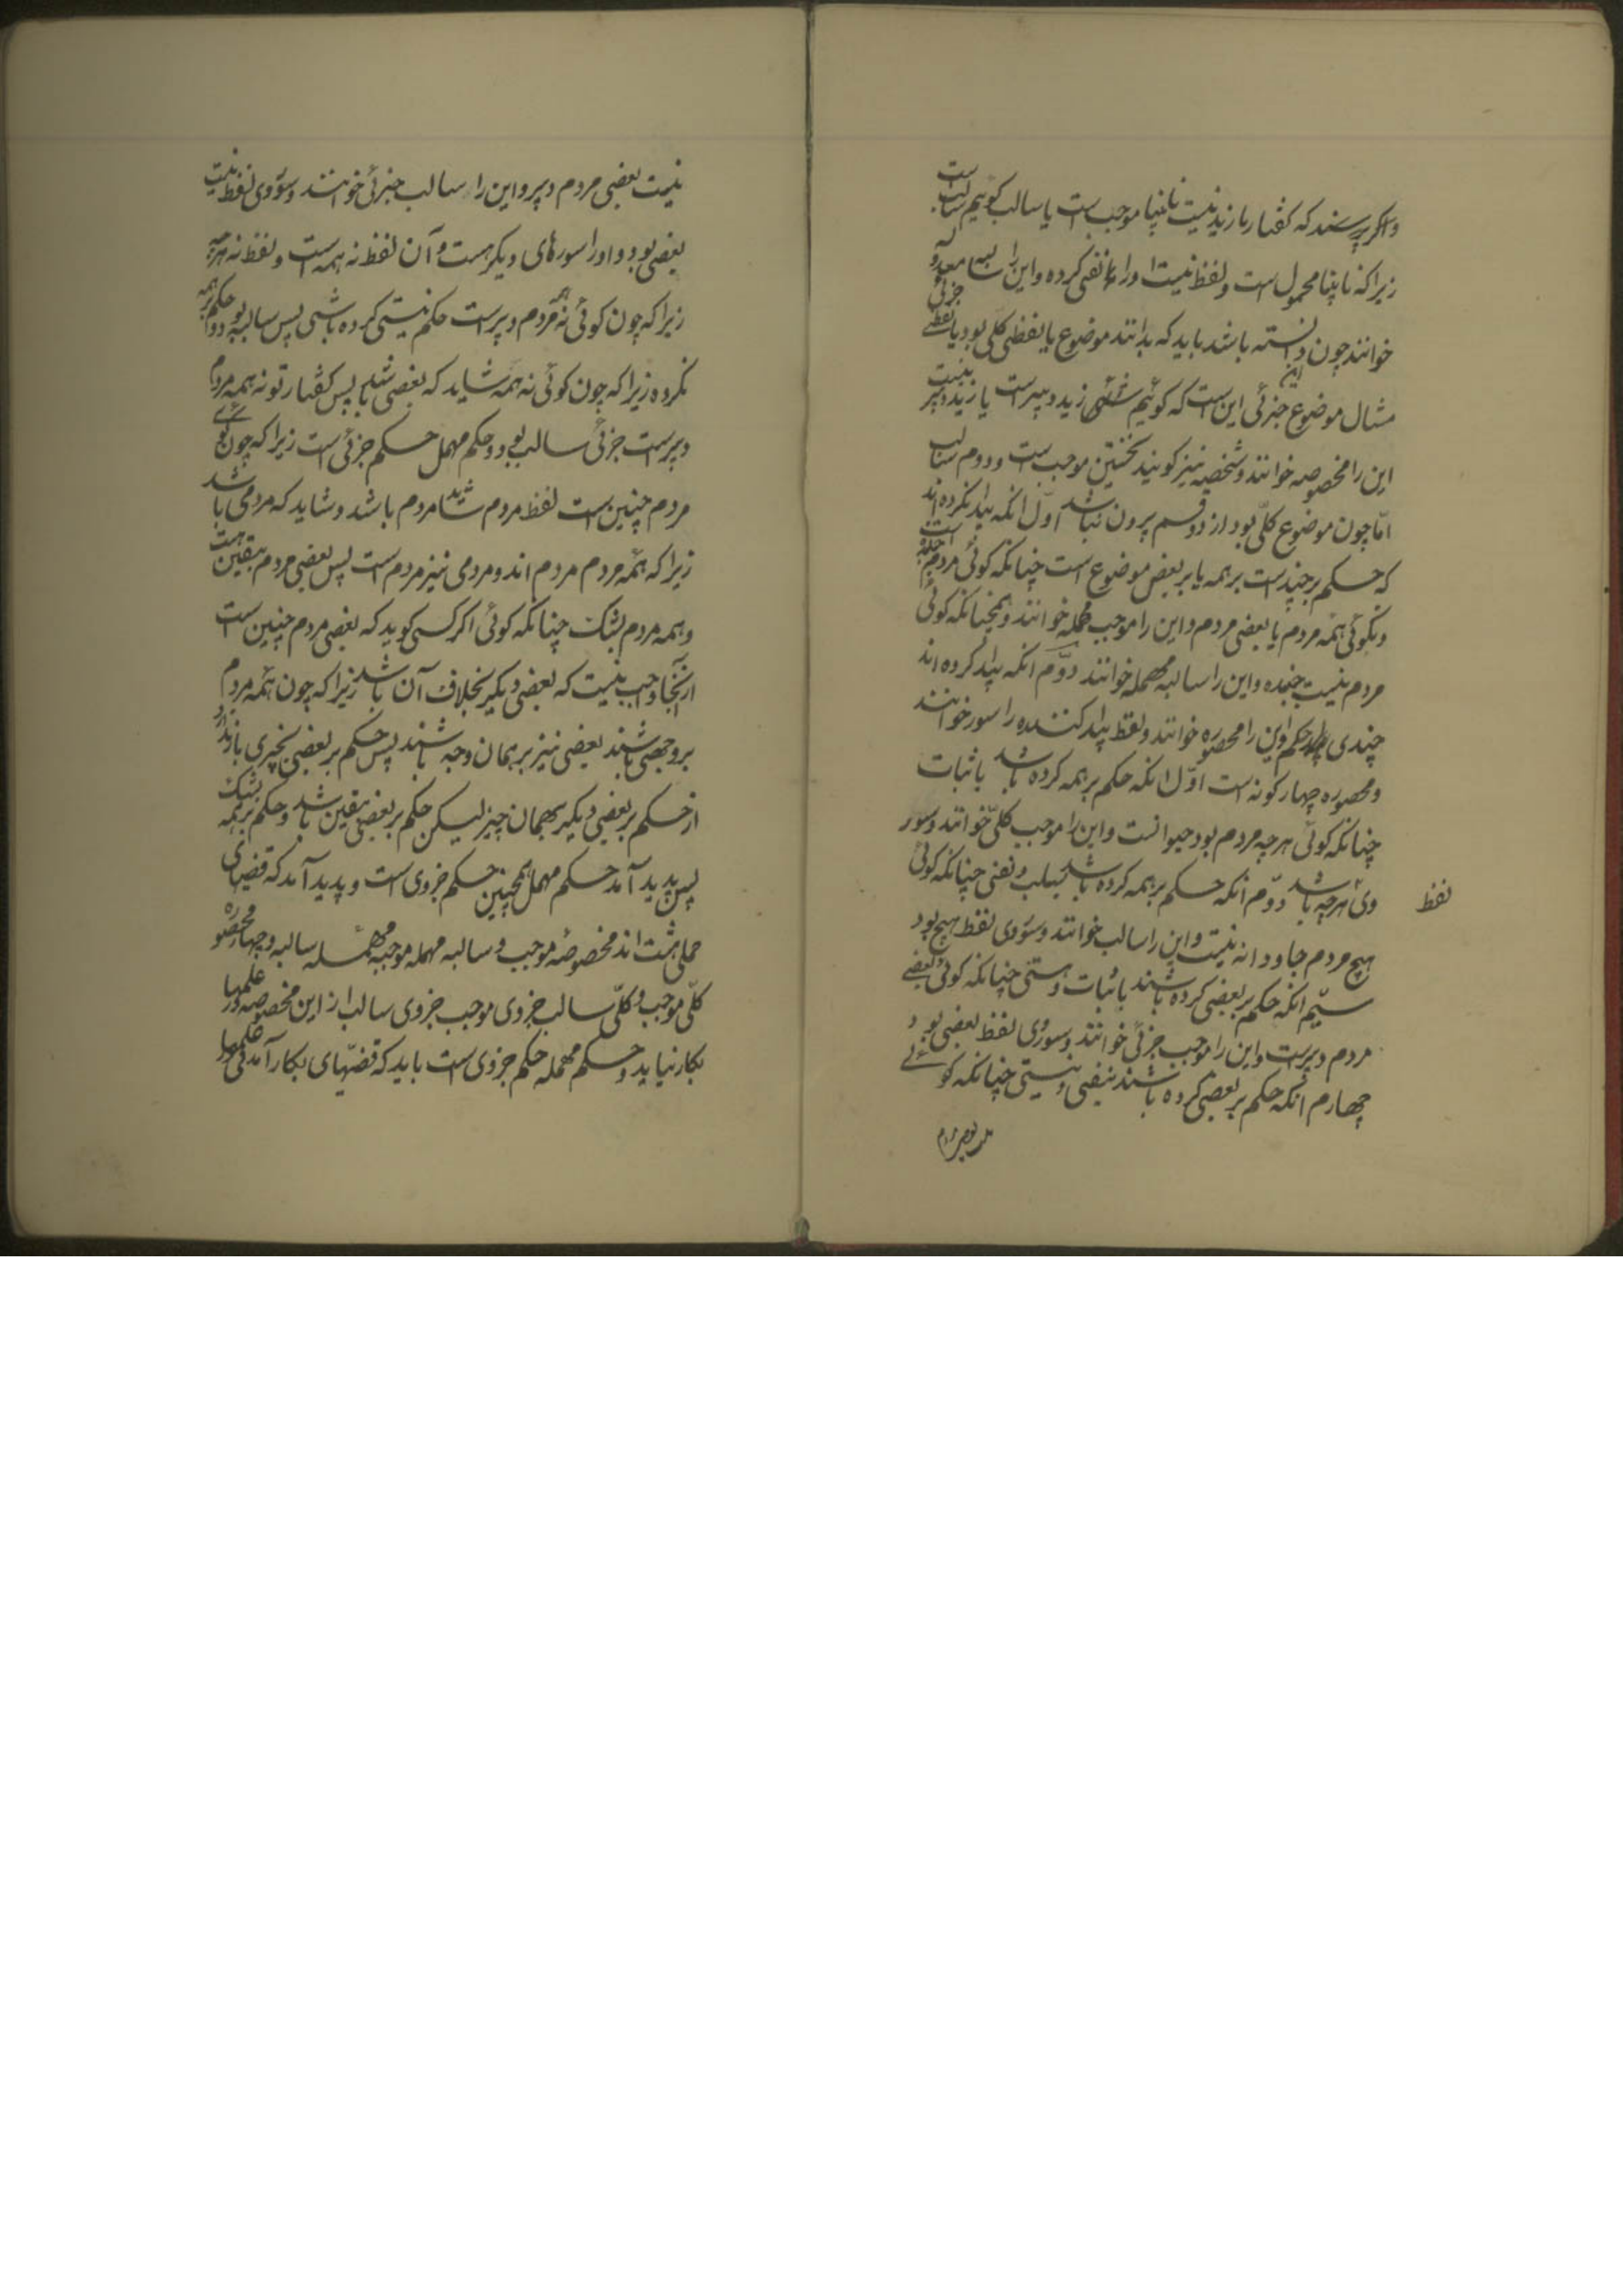 واکر پرسند که کفتار ما زید نیست نابینا موجب است یا سالب کوئیم سالب است
زیرا که نابینا محمول است و لفظ نیست او را نفی کرده و این را سالبه معدوله
خوانند چون دانسته باشد باید که بدانند موضوع یا لفظی کلی بود یا لفظی جزئی
مثال موضوع جزئی این است که کوئیم زید دبیر است یا زید دبیر نیست
این را مخصوصه خوانند و شخصیه نیز کویند نخستین موجب است و دوم سالب
امّا چون موضوع کلّی بود از دو قسم بیرون نباشد اوّل انکه پیدا نکرده اند
که حکم بر چند است بر همه یا بر بعض موضوع است چنانکه کوئی مردم جنبنده است
و نکوئی همه مردم یا بعضی مردم و این را موجب مهمله خوانند و همچنانکه کوئی
مردم نیست جنبده و این را سالبه مهمله خوانند دوّم انکه پیدا کرده اند
چندی حکم و این را محصوره خوانند و لفظ پیدا کننده را سور خوانند
و محصوره چهار کونه است اوّل انکه حکم بر همه کرده باشد باثبات
چنانکه کوئی هرچه مردم بود حیوانست و این را موجب کلّی خوانند و سور
وی هرچه باشد دوّم انکه حکم بر همه کرده باشد بسلب و نفی چنانکه کوئی
لفظ
هیچ مردم جاودانه نیست و این را سالب خوانند و سور وی لفظ هیچ بود
سیّم انکه حکم بر بعضی کرده باشند باثبات و هستی چنانکه کوئی بعضی
مردم دبیرست و این را موجب جزئی خوانند و سور وی لفظ بعضی بود
چهارم انکه حکم بر بعضی کرده باشند بنفی و نیستی چنانکه کوئے
نیست بعضی مردم دبیر و این را سالب جزئی خوانند و سور وی لفظ نیست
بعضی بود و او را سورهای دیکر هست و آن لفظ نه همه است و لفظ نه هرچه
زیرا که چون کوئی نه همه مردم دبیرست حکم نیستی کرده باشی پس سالبه بود و حکم بر همه
نکرده زیرا که چون کوئی نه همه شاید که بعضی باشد پس کفتار تو نه همه مردم
دبیرست جزئی سالب بود و حکم مهمل حکم جزئی است زیرا که چون کوئے
مردم چنین است لفظ مردم شاید مردم باشد و شاید که مردمی باشد
زیرا که همه مردم مردم اند و مردمی نیز مردم است پس بعضی مردم بیقین هست
و همه مردم بشک چنانکه کوئی اکر کسی کوید که بعضی مردم چنین است
از آنجا واجب نیست که بعضی دیکر بخلاف آن باشد زیرا که چون همه مردم
بر وجهی باشند بعضی نیز بر همان وجه باشند پس حکم بر بعضی بچیزی باز ندارد
از حکم بر بعضی دیکر بهمان چیز لیکن حکم بر بعضی بیقین باشد و حکم بر همه بشک
پس پدید آمد حکم مهمل همچنین حکم جزوی است و پدید آمد که قضیهای
حملی هشت اند مخصوصه موجب و سالبه مهمله موجبه مهمله سالبه و چهار محصوره
کلّی موجب و کلّی سالب جزوی موجب جزوی سالب از این مخصوصه در علمها
بکار نیاید و حکم مهمله حکم جزوی است باید که قضیّهای بکار آمدنی